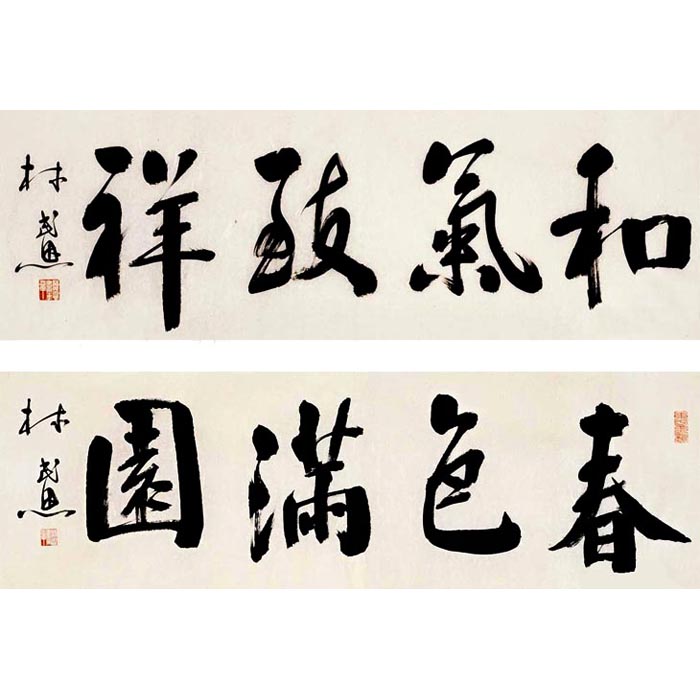 和氣致祥
林
春色滿園
林